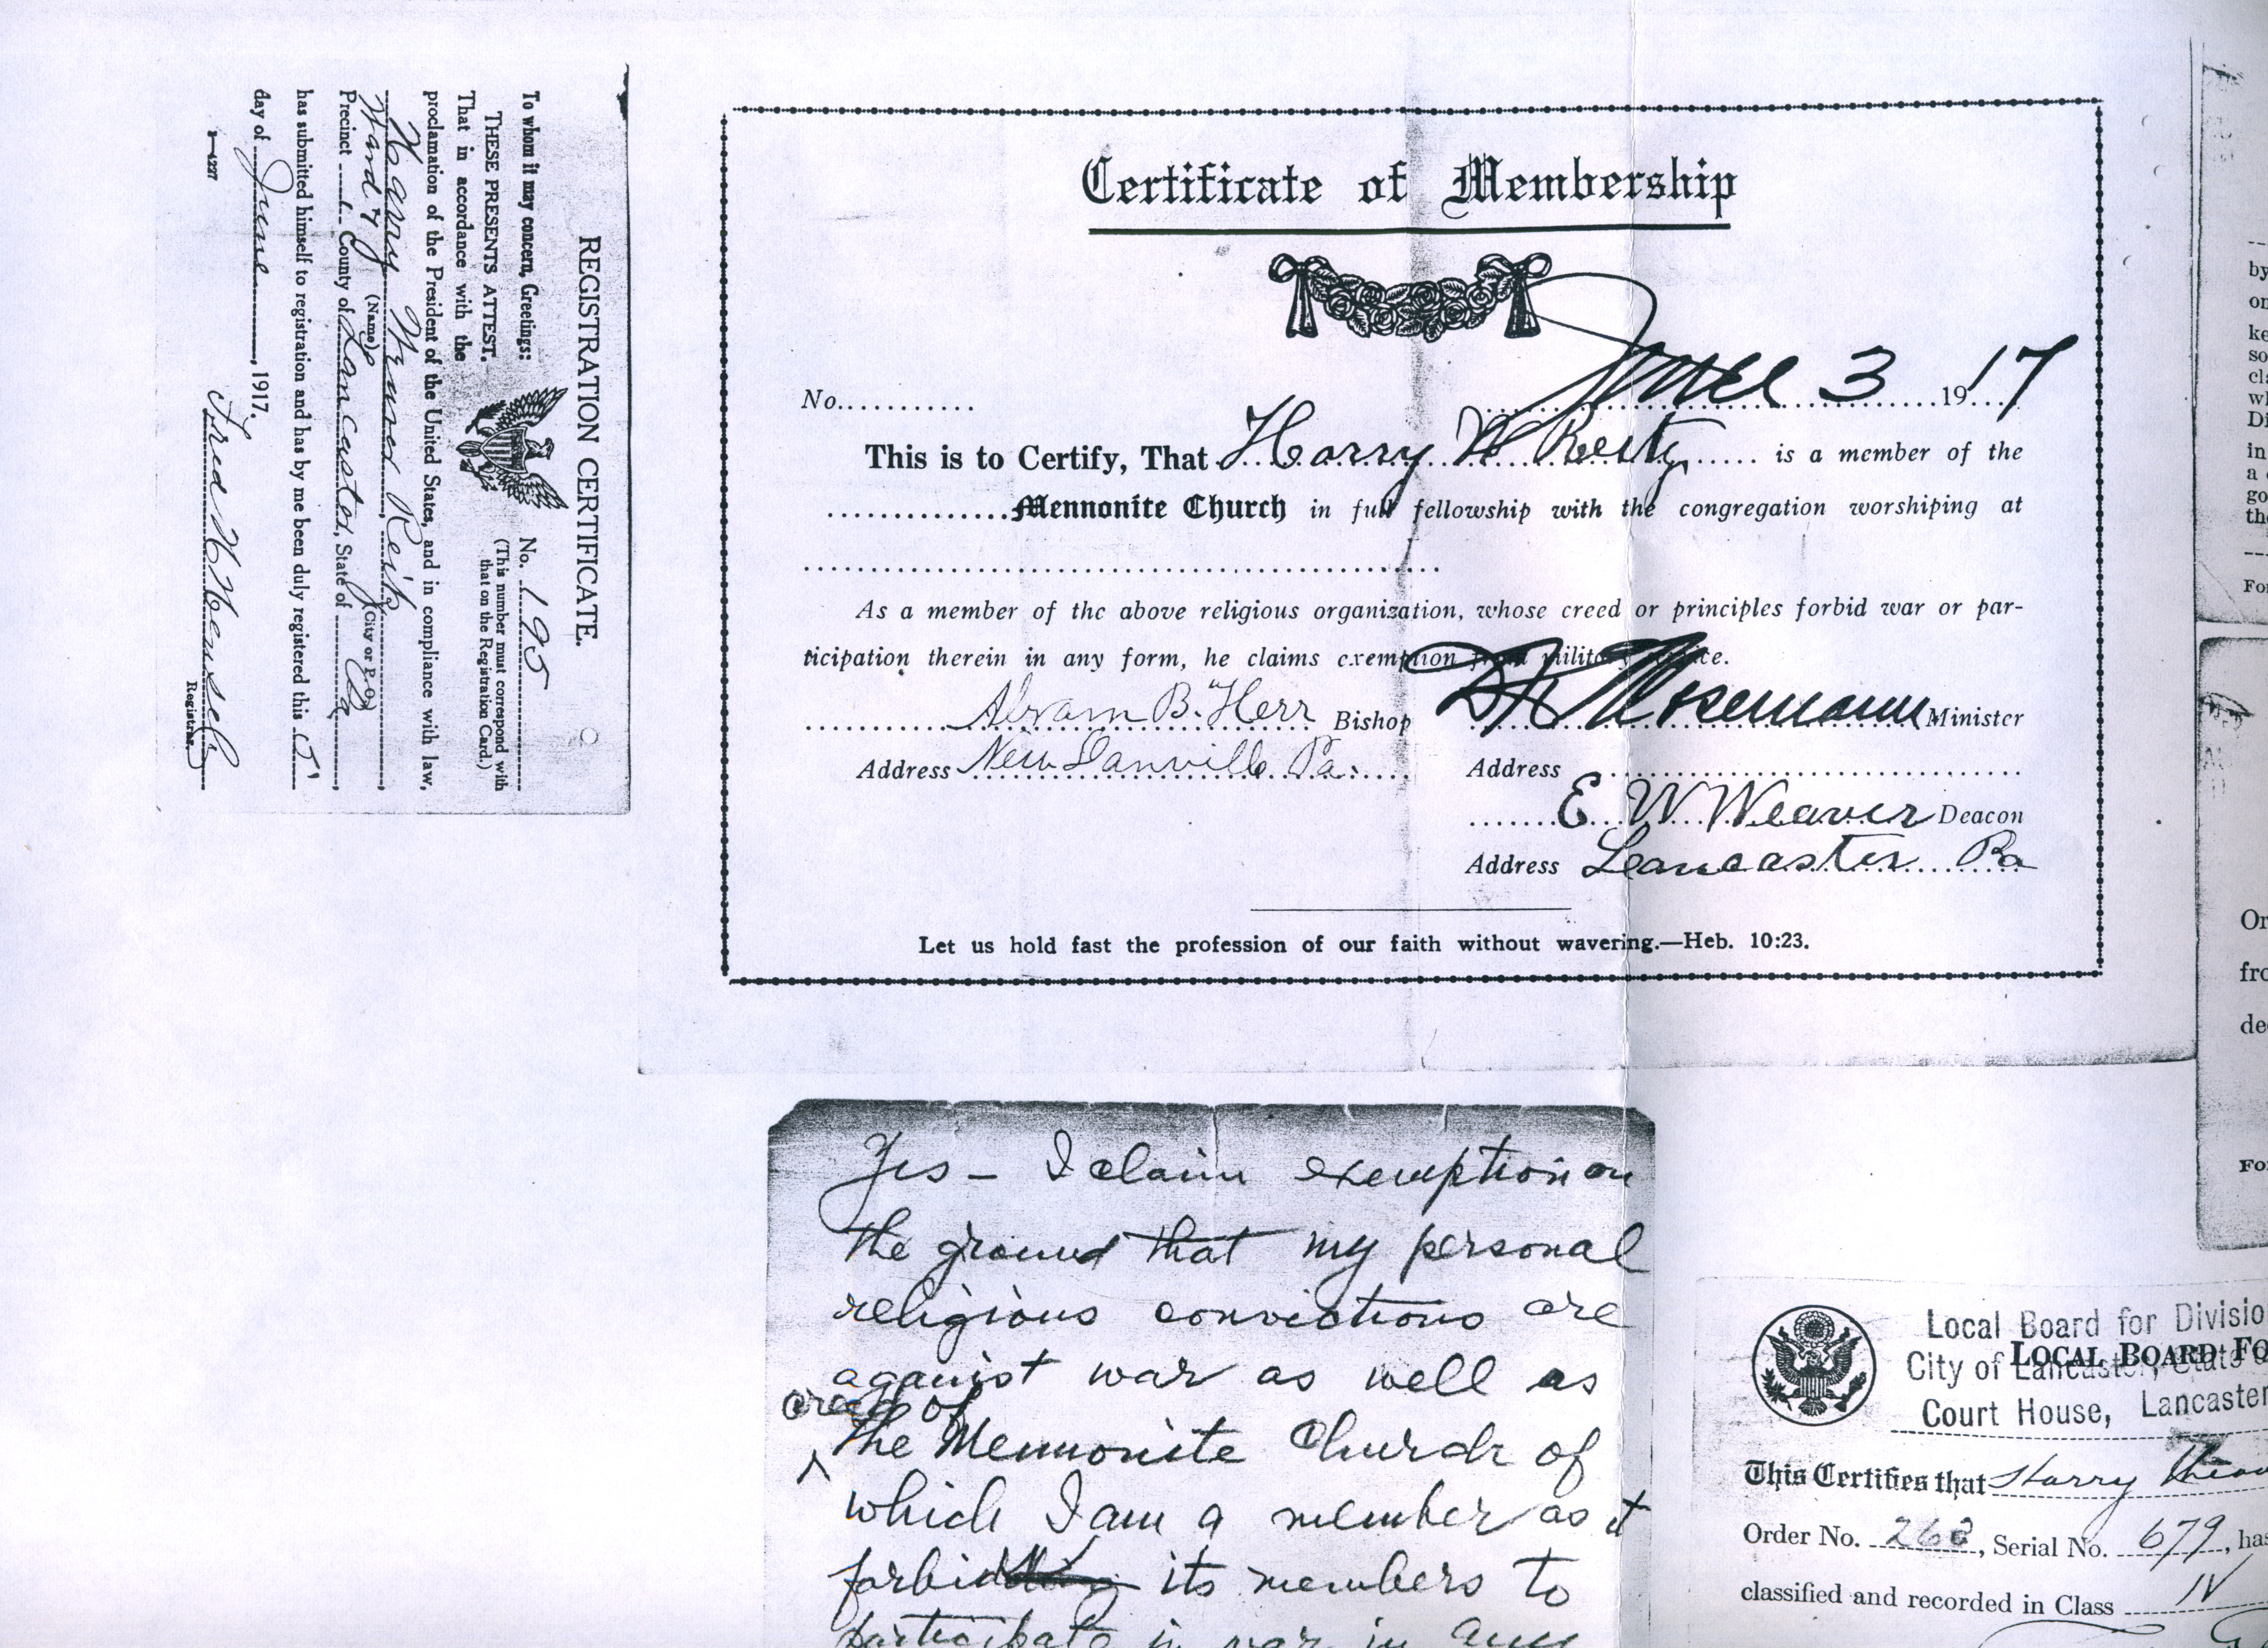 REGISTRATION CERTIFICATE.
To whom it may concern, Greetings:
No. 195
THESE PRESENTS ATTEST.
(This number must correspond with
that on the Registration Card.)
That in accordance with the
proclamation of the President of the United States, and in compliance with law,
Harry
(Name)
(City or P.O.)
Ward 7
Precinct 1 County of Lancaster, State of Pa
has submitted himself to registration and has by me been duly registered this 5'
day of June, 1917.
Fred H Hensel
Registrar.
3—4227
Certificate of Membership
No. June 3 1917
This is to Certify, That Harry W is a member of the
Mennonite Church in full fellowship with the congregation worshiping at
As a member of the above religious organization, whose creed or principles forbid war or par-
ticipation therein in any form, he claims exemption from military service.
Abram B. Herr Bishop
Mosemann Minister
Address New Danville Pa.
Address
E W Weaver Deacon
Address Lancaster Pa
Let us hold fast the profession of our faith without wavering.—Heb. 10:23.
Yes – I claim exemption on
the ground that my personal
religious convictions are
against war as well as
creed of
the Mennonite Church of
which I am a member as it
forbid its members to
participate in war in any
Local Board for Divisio
LOCAL BOARD FO
City of Lancaster, State
Court House, Lancaster
This Certifies that Harry
Order No. 262, Serial No. 679, has
classified and recorded in Class IV
by
on
ke
so
cl
wh
Di
in
a
go
the
Fo
Or
fro
de
Fo